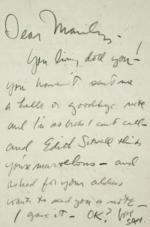 Dear Marilyn
You living doll you!
you haven't sent me
a hello or goodbye note
and I'm so broke I can't call –
and Edith Sitwell thinks
you're marvelous – and
asked for your address
wants to send you a note –
I gave it – OK? love